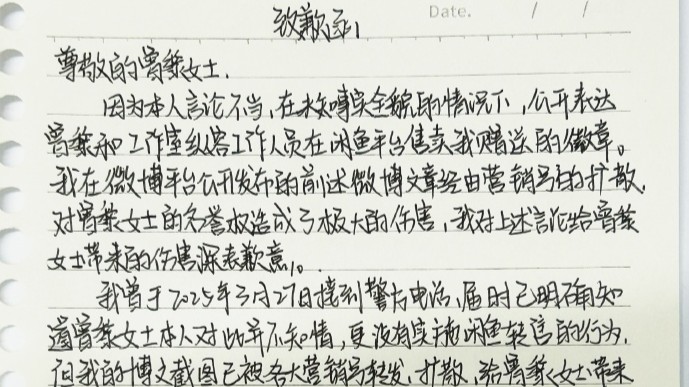 致歉函
Date. / /
尊敬的曾黎女士.
因为本人言论不当,在未知晓事实全貌的情况下,公开表达
曾黎和工作室纵容工作人员在闲鱼平台售卖我赠送的徽章。
我在微博平台公开发布的前述微博文章经由营销号的扩散,
对曾黎女士的名誉权造成了极大的伤害,我对上述言论给曾黎
女士带来的伤害深表歉意。
我曾于2025年3月27日接到警方电话,届时已明确知
道曾黎女士本人对此并不知情,更没有实施闲鱼转售的行为,
但我的博文截图已被各大营销号转发、扩散,给曾黎女士带来